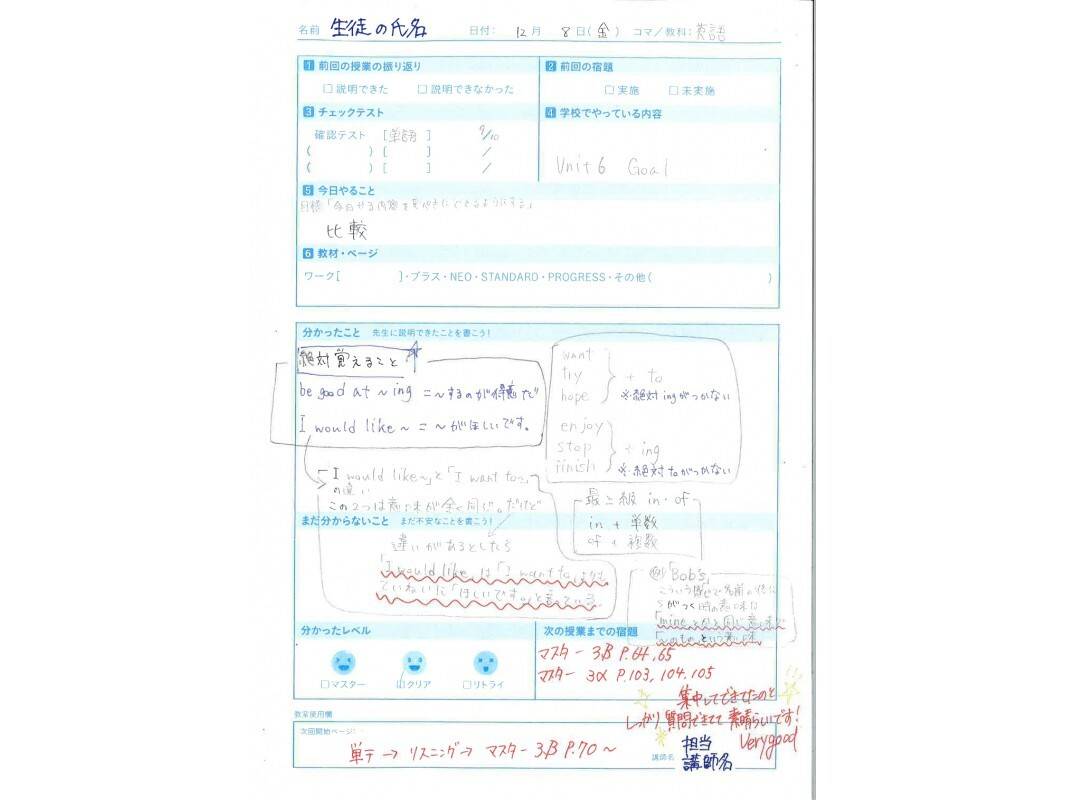 名前 生徒の氏名 日付: 12月 8日(金) コマ/教科: 英語
1 前回の授業の振り返り 2 前回の宿題
□ 説明できた □ 説明できなかった □ 実施 □ 未実施
3 チェックテスト 4 学校でやっている内容
確認テスト [単語] 9/10
( ) [ ] /
( ) [ ] /
Unit 6 Goal
5 今日やること
目標「今日やる内容を完ぺきにできるようにする」
比較
6 教材・ページ
ワーク[ ]・プラス・NEO・STANDARD・PROGRESS・その他( )
分かったこと 先生に説明できたことを書こう!
絶対覚えること
be good at ~ ing = ~するのが得意だ
I would like ~ = ~がほしいです。
want
try
hope
+ to
※絶対ingがつかない
enjoy
stop
finish
+ ing
※絶対toがつかない
「I would like~」と「I want to~」
の違い
この2つは意味が全く同じ。だけど
最上級 in・of
in + 単数
of + 複数
まだ分からないこと まだ不安なことを書こう!
違いがあるとしたら
「I would like」は「I want to」よりも
ていねいに「ほしいです。」と言っている
例「Bob's」
こういう感じで名前の後に
sがつく時の意味は
「mine」とかと同じ意味で
「~のもの」という意味
分かったレベル 次の授業までの宿題
□マスター □クリア □リトライ
マスター 3β P.64,65
マスター 3α P.103, 104, 105
集中してできてたのと
しっかり質問できてて素晴らしいです!
Very good
教室使用欄
次回開始ページ:
単テ → リスニング → マスター 3β P.70 ~
講師名 担当
講師名